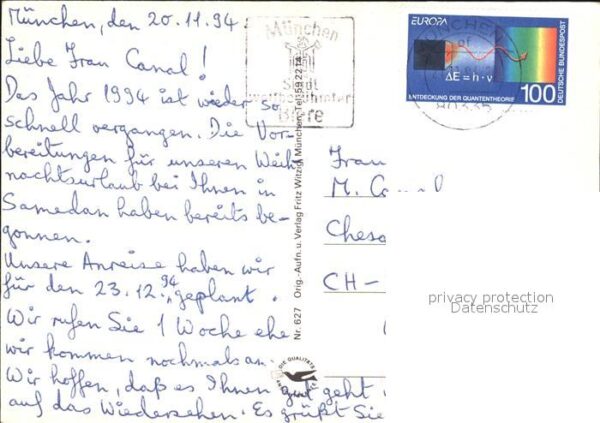 München, den 20.11.94
Liebe Frau Canal!
Das Jahr 1994 ist wieder so
schnell vergangen. Die Vor-
bereitungen für unseren Weih-
nachtsurlaub bei Ihnen in
Samedan haben bereits be-
gonnen.
Unsere Anreise haben wir
für den 23.12.94 geplant.
Wir rufen Sie 1 Woche ehe
wir kommen nochmals an.
Wir hoffen, daß es Ihnen gut geht
auf das Wiedersehen. Es grüßt Sie
München
Stadt
weltberühmter
Biere
EUROPA
ΔE = h·ν
ENTDECKUNG DER QUANTENTHEORIE
100
DEUTSCHE BUNDESPOST
MÜNCHEN
Nr. 627 Orig.-Aufn. u. Verlag Fritz Witzig München, Tel. 592214
DIE QUALITÄTS
Frau
M. C
Chesa
CH-
privacy protection
Datenschutz